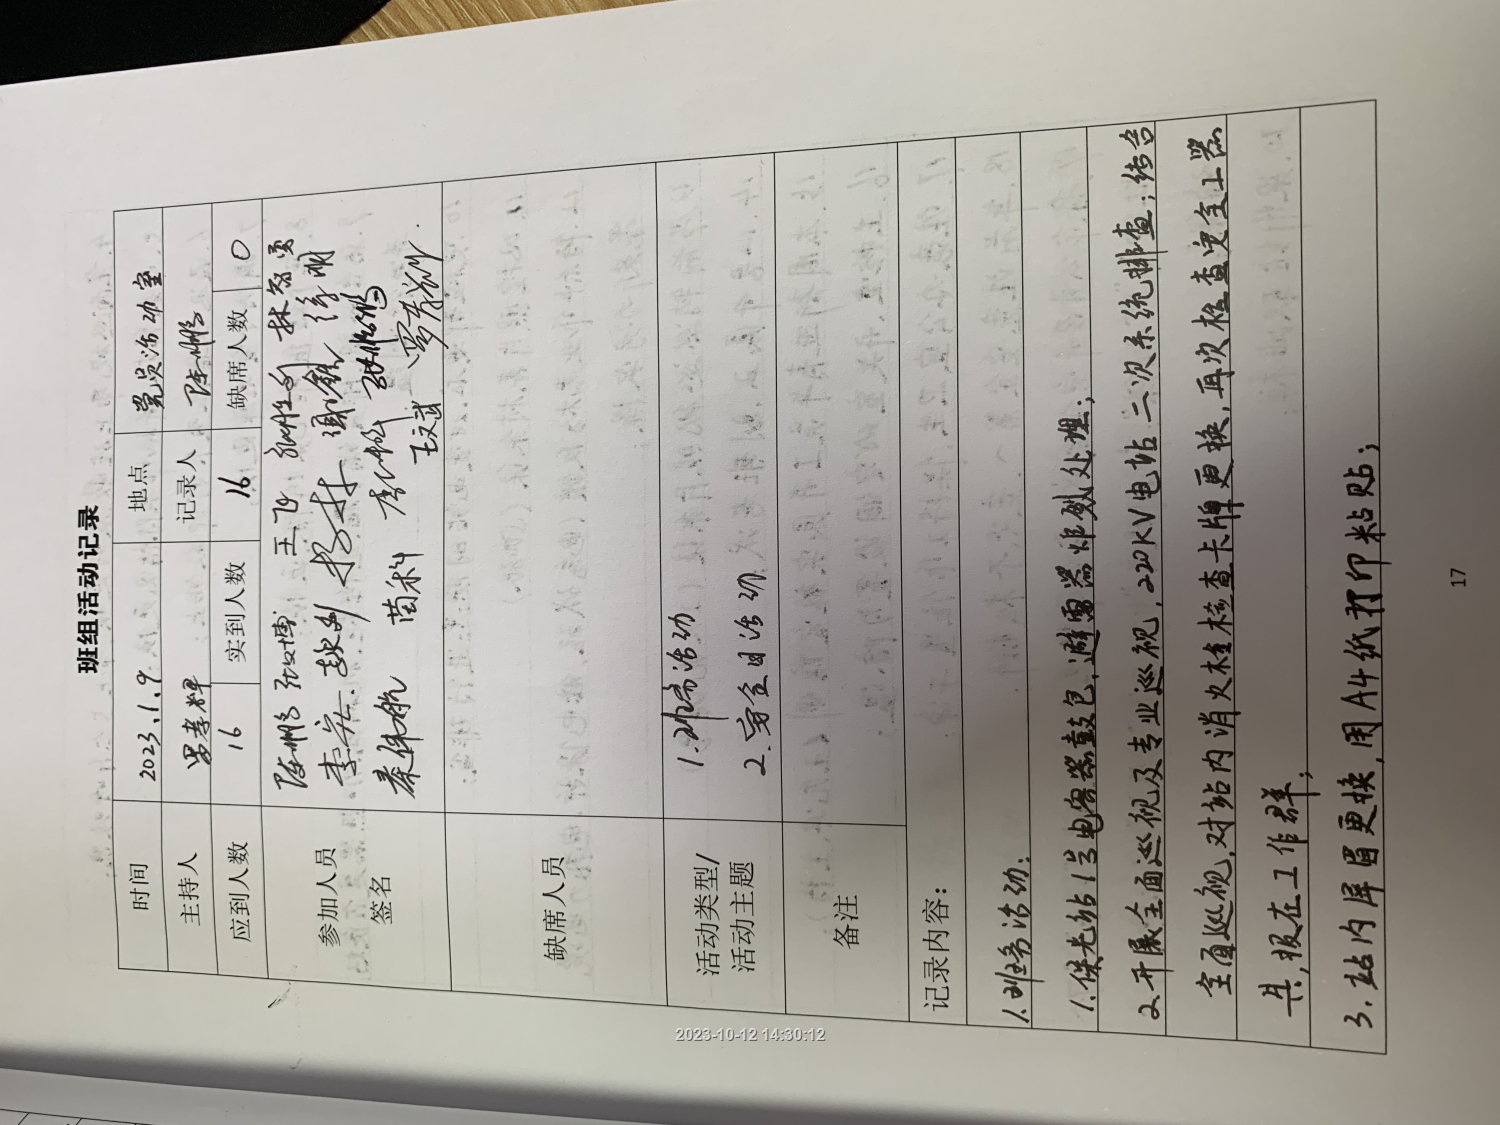 班组活动记录
时间 2023.1.9 地点 党员活动室
主持人 记录人 陈鹏
应到人数 16 实到人数 16 缺席人数 0
参加人员 陈鹏 张文博 王飞 张胜利 林智勇
签名 李宏 赵利 杨林 谢毅 徐明
秦伟航 苗科
王文武
缺席人员
活动类型/ 1.班务活动
活动主题 2.安全日活动
备注
记录内容：
1.班务活动：
1.保光站1号电容器鼓包，避雷器炸裂处理；
2.开展全面巡视及专业巡视，220KV电站二次系统排查；结合
全面巡视，对站内消火栓检查卡牌更换，再次检查安全工器
具，报在工作群；
3.站内屏眉更换，用A4纸打印粘贴；
17
2023-10-12 14:30:12